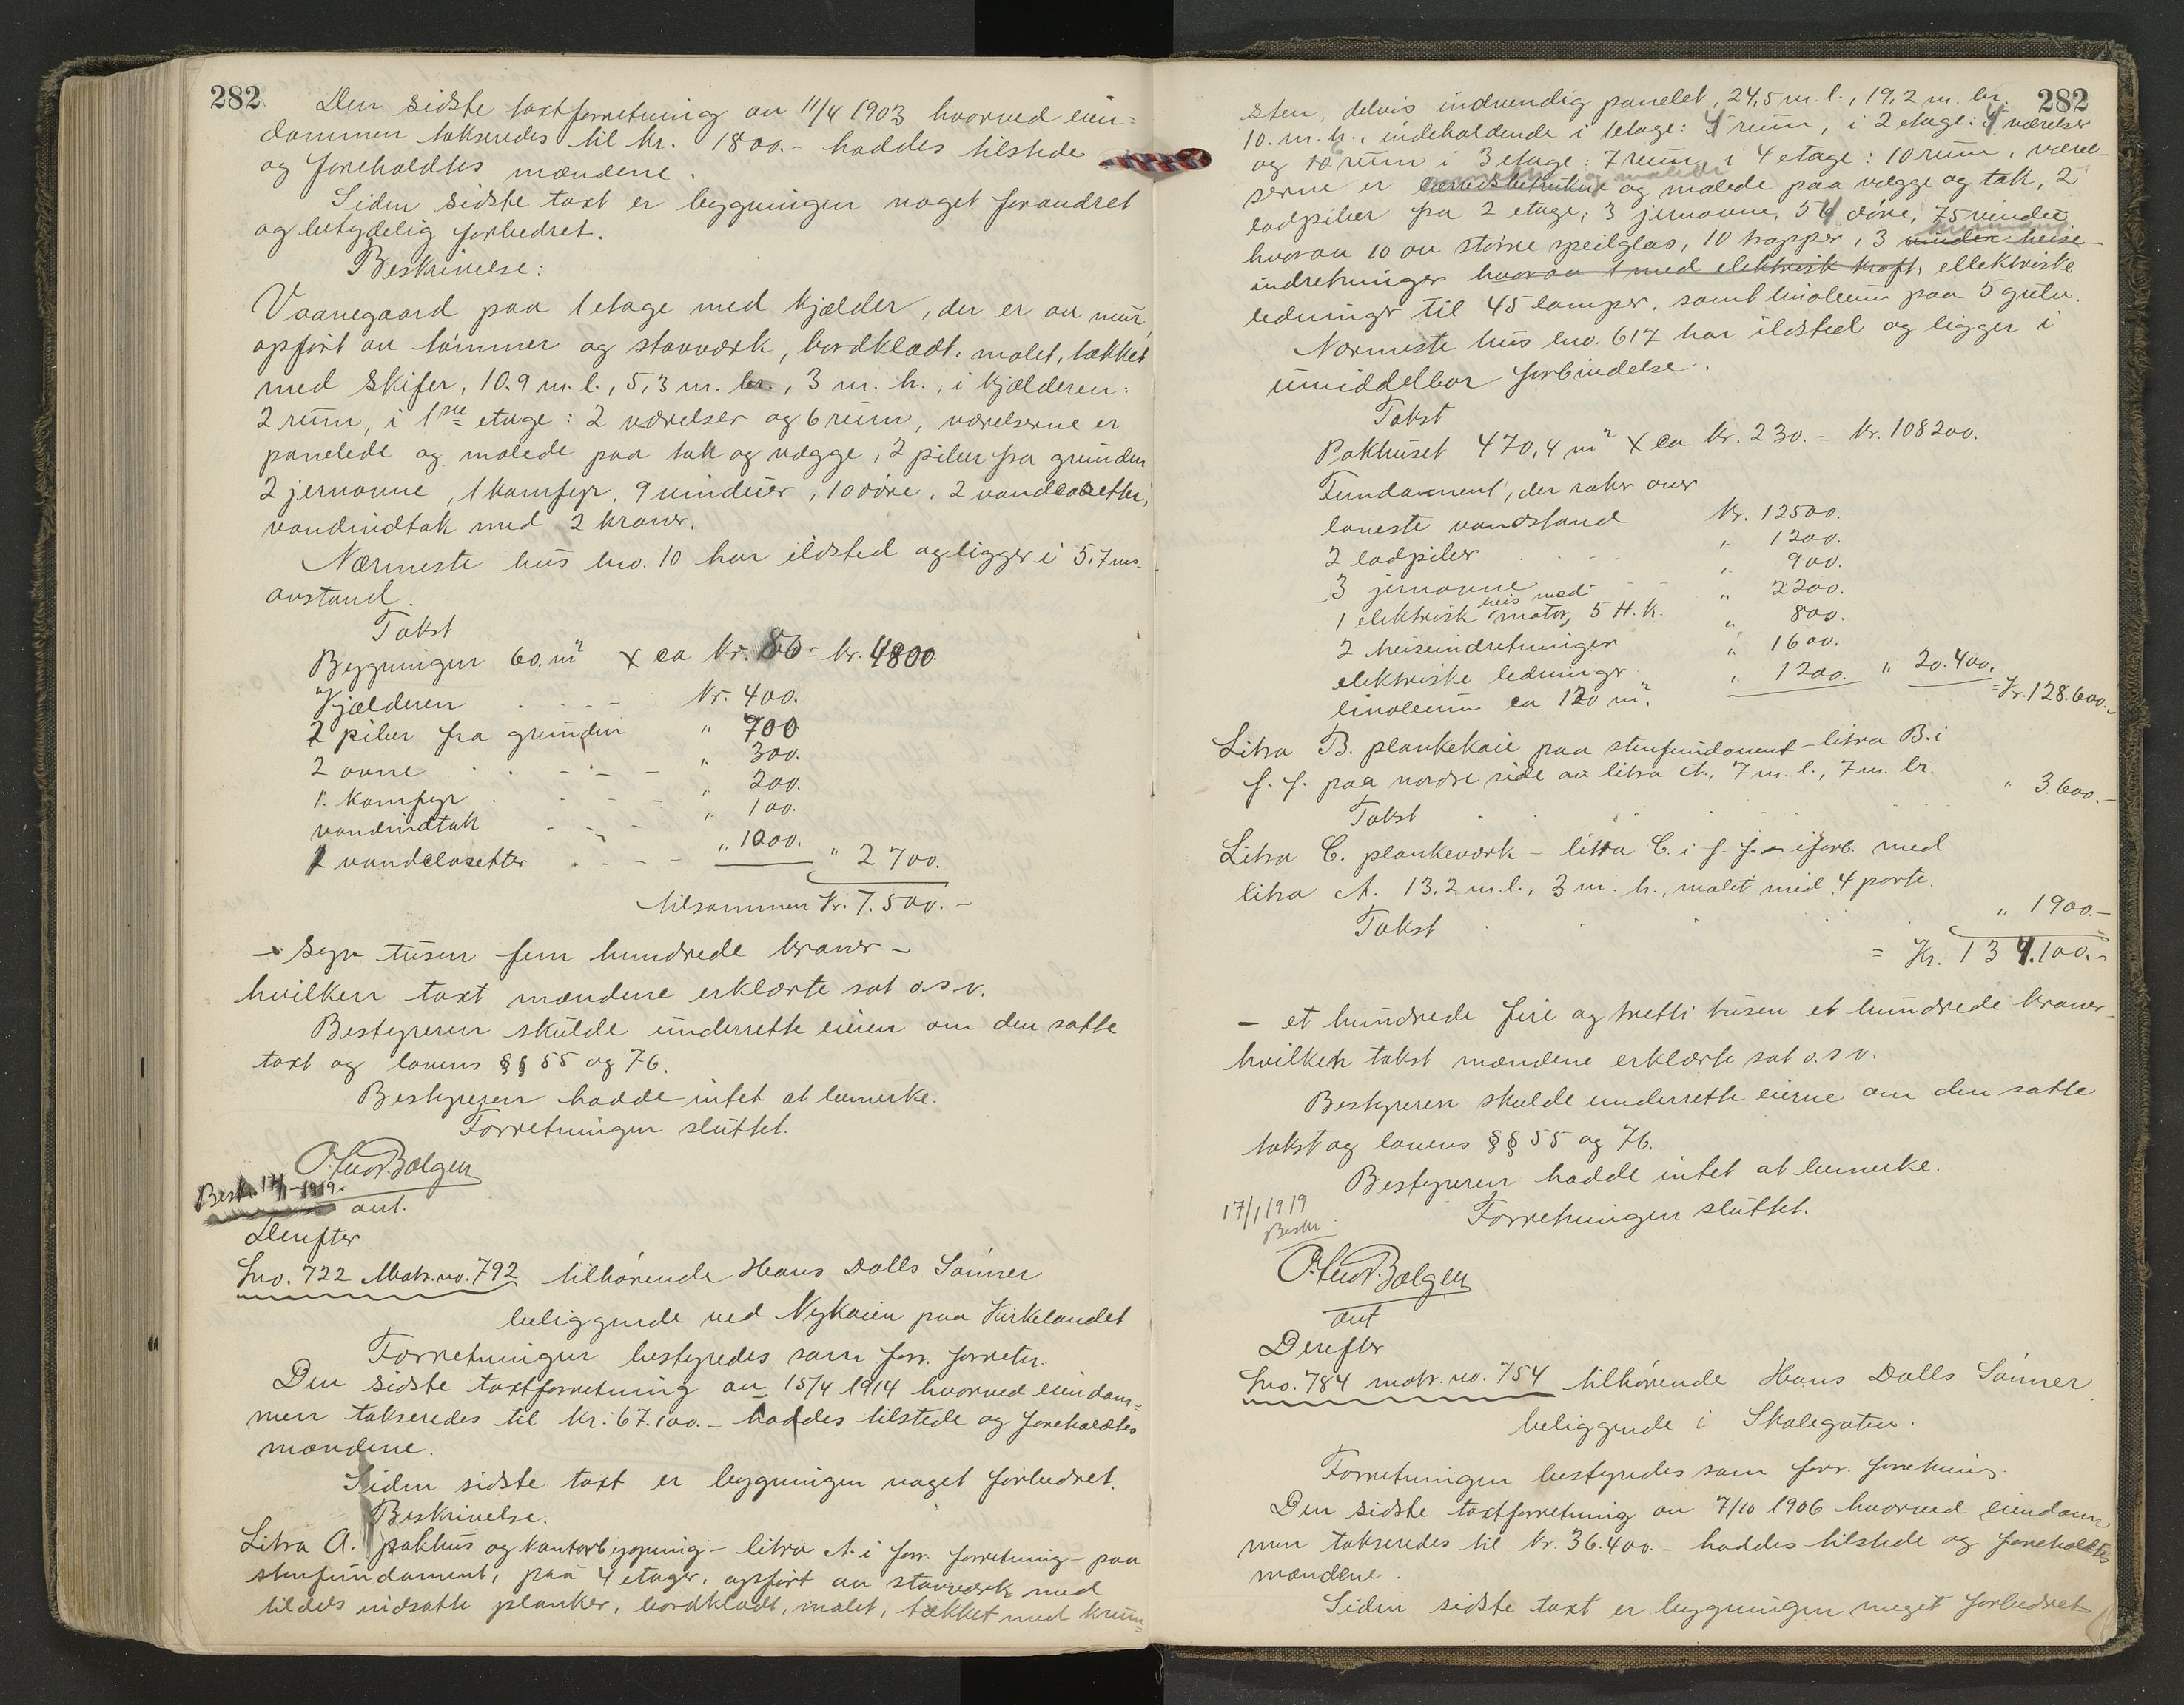 282
Den sidste taxtforretning av 11/4 1903 hvorved eien=
dommen takseredes til kr. 1800.- haddes tilstede
og foreholdtes mændene.
Siden sidste taxt er bygningen noget forandret
og betydelig forbedret.
Beskrivelse:
Vaanegaard paa 1 etage med kjælder, der er av mur,
opført av tømmer og stavværk, bordklædt, malet, tækket
med skifer, 10.9 m. l., 5,3 m. br., 3 m. h., i kjælderen:
2 rum, i 1ste etage: 2 værelser og 6 rum, værelserne er
panelede og malede paa tak og vægge, 2 piber fra grunden
2 jernovne, 1 komfyr, 9 vinduer, 10 døre, 2 vandclosetter,
vandindtak med 2 kraner.
Nærmeste hus bno. 10 har ildsted og ligger i 5,7 ms.
avstand.
Takst
Bygningen 60. m² x ca kr. 80 = kr. 4800.
Kjælderen . - - - Kr. 400.
2 piber fra grunden " 700
2 ovne . . - - - " 300.
1. komfyr . . - - " 200.
vandindtak - - - " 100.
2 vandclosetter . . - - " 1000. " 2700.
tilsammen Kr. 7.500.-
- syv tusen fem hundrede kroner -
hvilken taxt mændene erklærte sat o.s.v.
Bestyreren skulde underrette eieren om den satte
taxt og lovens §§ 55 og 76.
Bestyreren hadde intet at bemerke.
Forretningen sluttet.
O. Ludv. Bælgen
Beskr. 17/1-1919.
aut.
Derefter
Lno. 722 Matr. no. 792 tilhørende Hans Dalls Sønner
beliggende ved Nykaien paa Kirkelandet
Forretningen bestyredes som forr. forretn.
Den sidste taxtforretning av 15/4 1914 hvorved eiendom=
men takseredes til kr. 67.100.- haddes tilstede og foreholdtes
mændene.
Siden sidste taxt er bygningen noget forbedret.
Beskrivelse:
Litra A. pakhus og kontorbygning - litra A. i forr. forretning - paa
stenfundament, paa 4 etager, opført av stavværk med
tildels indsatte planker, bordklædt, malet, tækket med krum=
282
sten, delvis indvendig panelet, 24,5 m. l., 19,2 m. br.
10. m. h., indeholdende i 1 etage: 4 rum, i 2 etage: 4 værelser
og 10 rum i 3 etage: 7 rum, i 4 etage: 10 rum, værel-
serne er lærredsbetrukne og malede paa vægge og tak, 2
lodpiber fra 2 etage, 3 jernovne, 54 døre, 75 vinduer,
hvorav 10 av større speilglas, 10 trapper, 3 vinder heise-
indretninger hvorav 1 med elektrisk kraft, ellektriske
ledninger til 45 lamper, samt linoleum paa 5 gulv.
Nærmeste hus bno. 617 har ildsted og ligger i
umiddelbar forbindelse.
Takst
Pakhuset 470,4 m² x ca kr. 230. = kr. 108200.
Fundament, der raker over
laveste vandstand Kr. 12500.
2 lodpiber . . - - " 1200.
3 jernovne - - " 900.
1 elektrisk heis med motor, 5 H.K. " 2200.
2 heiseindretninger " 800.
elektriske ledninger " 1600.
linoleum ca 120 m². " 1200. " 20.400.
= Kr. 128.600.-
Litra B. plankekaie paa stenfundament - litra B. i
f. f. paa nordre side av litra A., 7 m. l., 7 m. br.
Takst . . . " 3.600.-
Litra C. plankeværk - litra C. i f. f. - i forb. med
litra A. 13,2 m. l., 3 m. h., malet med 4 porte.
Takst . . . " 1900.-
= Kr. 134.100.-
- et hundrede fire og tretti tusen et hundrede kroner -
hvilken takst mændene erklærte sat o.s.v.
Bestyreren skulde underrette eierne om den satte
takst og lovens §§ 55 og 76.
Bestyreren hadde intet at bemerke.
Forretningen sluttet.
17/1 1919
Beskr.
O. Ludv. Bælgen
aut
Derefter
Lno. 784 matr. no. 754 tilhørende Hans Dalls Sønner
beliggende i Skolegaten.
Forretningen bestyredes som forr. forretning.
Den sidste taxtforretning av 7/10 1906 hvorved eiendom=
men takseredes til kr. 36.400.- haddes tilstede og foreholdtes
mændene.
Siden sidste taxt er bygningen meget forbedret